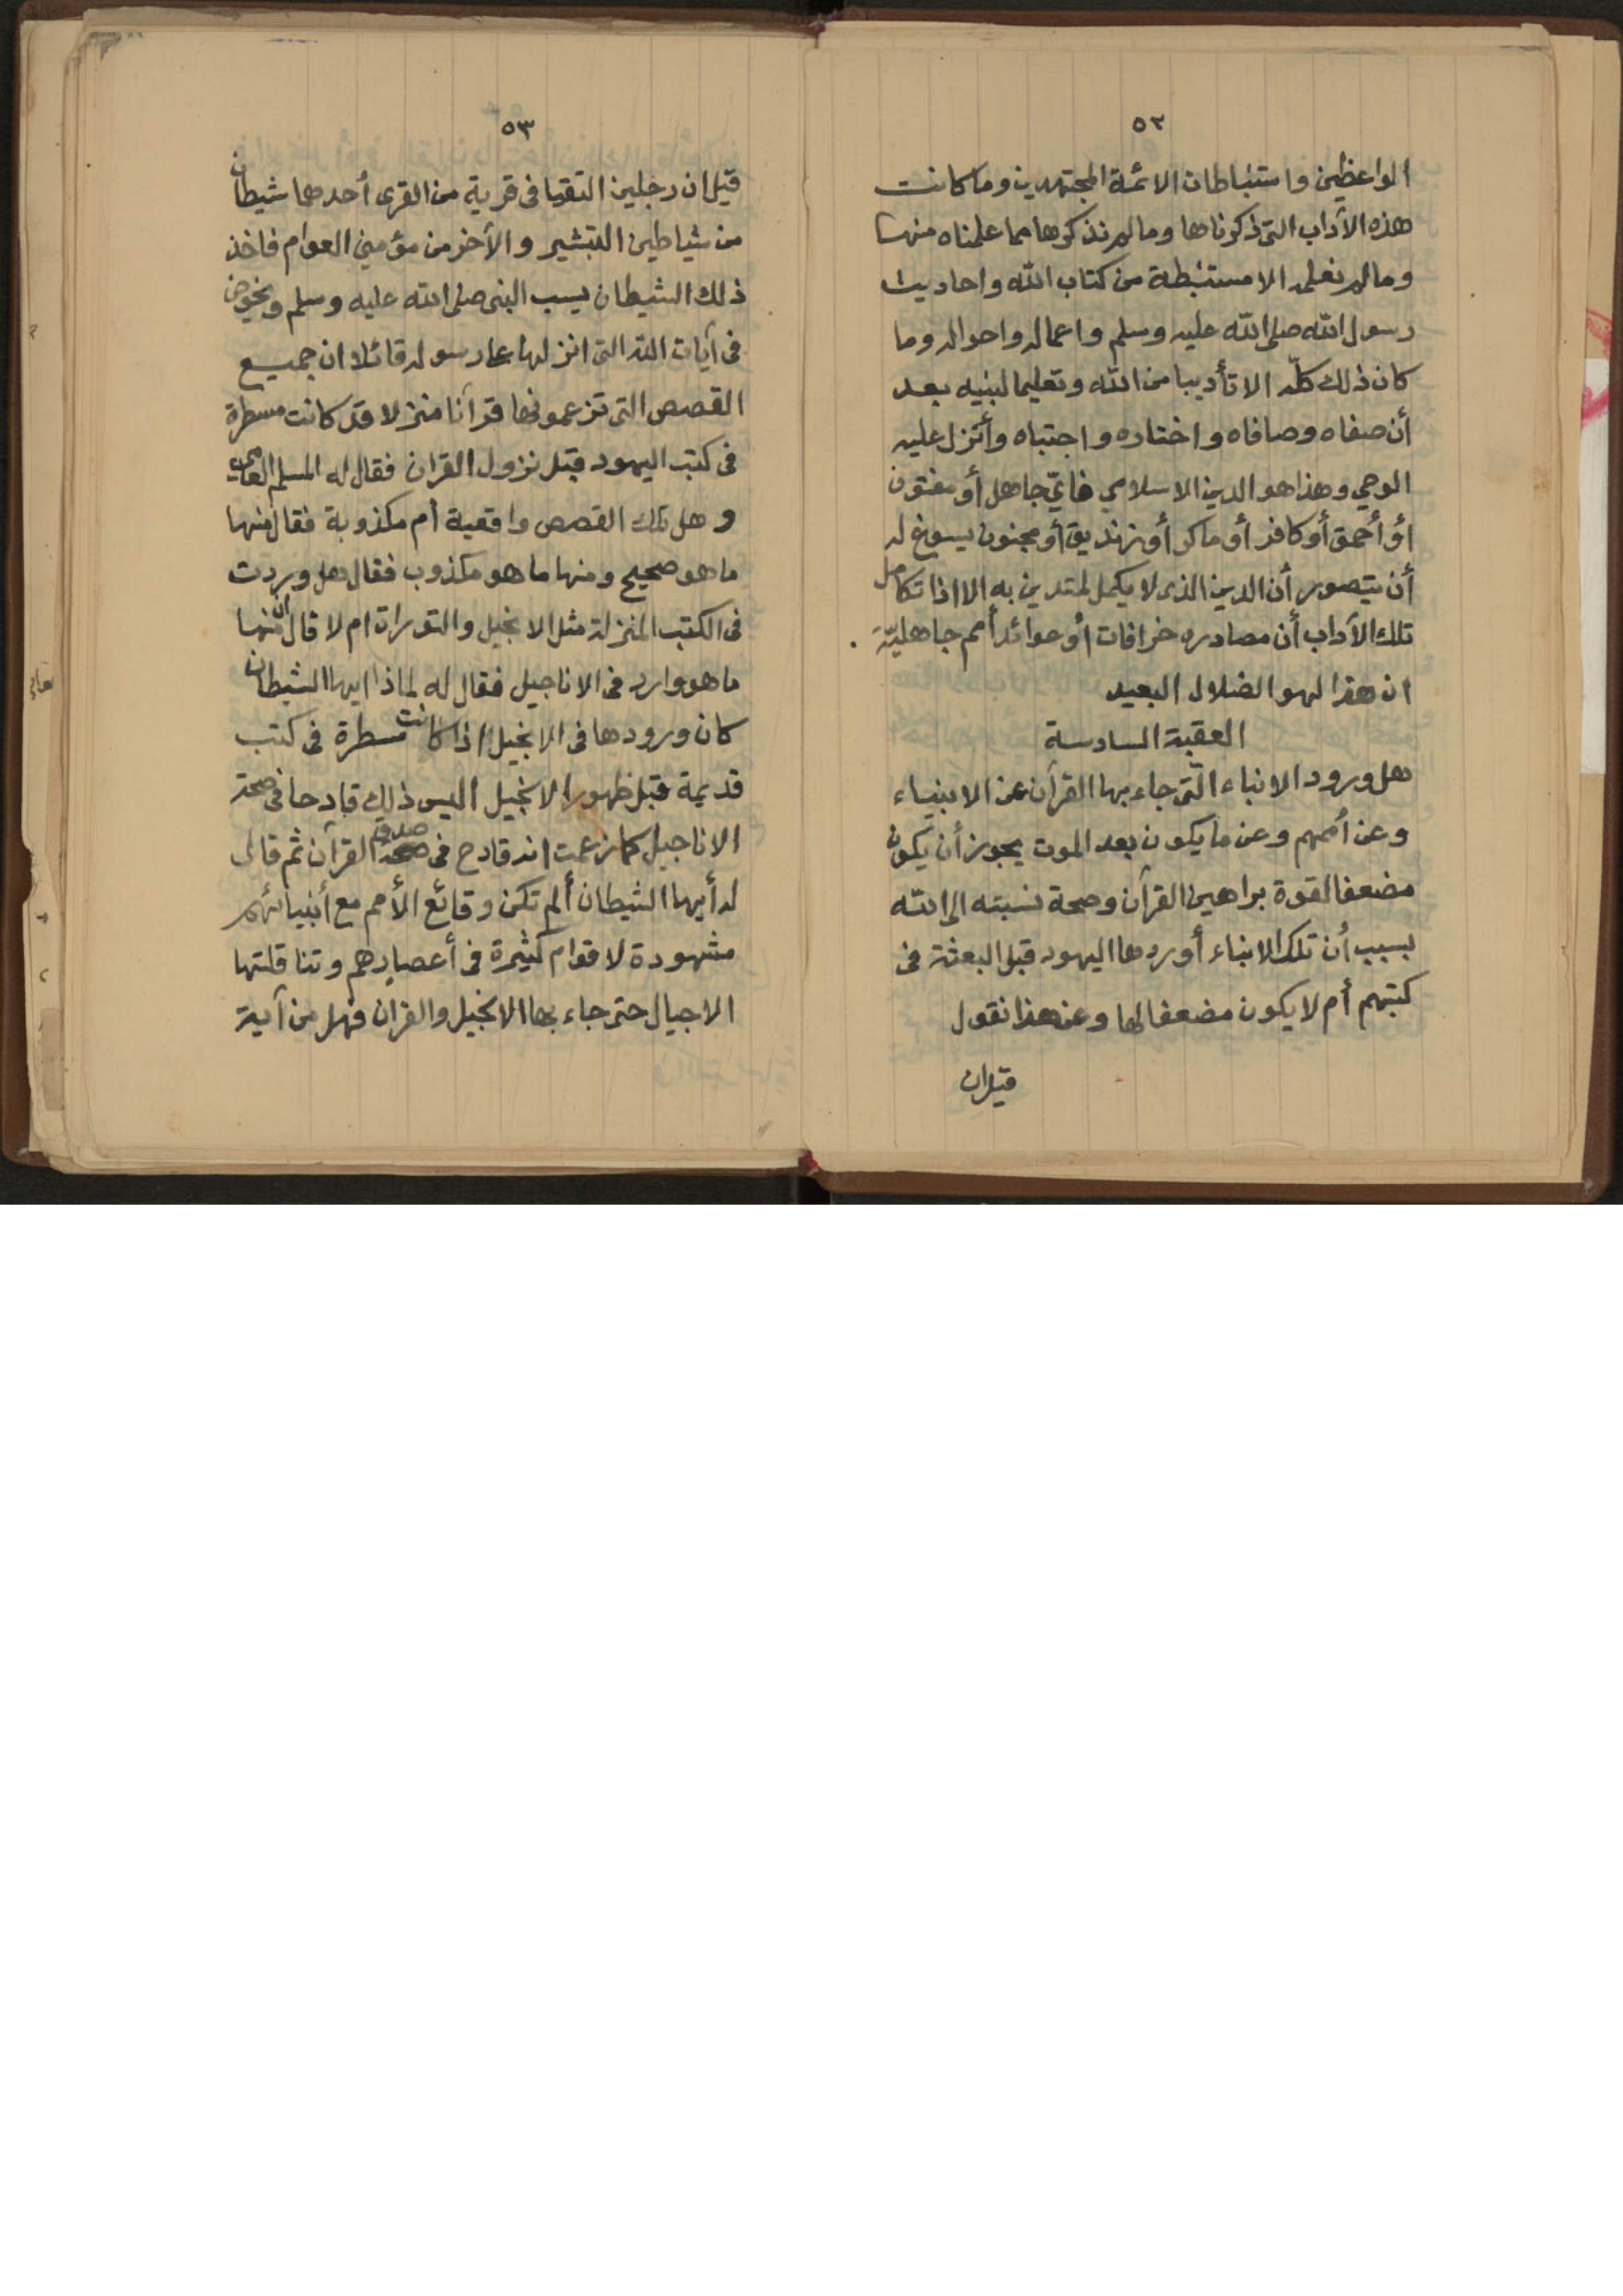 ٥٢
الواعظين واستنباطات الائمة المجتهدين وما كانت
هذه الآداب التى ذكرناها وما لم نذكرها مما علمناه منها
وما لم نعلمه الا مستنبطة من كتاب الله واحاديث
رسول الله صلى الله عليه وسلم واعماله واحواله وما
كان ذلك كلّه الا تأديبا من الله وتعليما لنبيه بعد
أن صفاه وصافاه واختاره واجتباه وأنزل عليه
الوحي وهذا هو الدين الاسلامي فايّ جاهل أو مفتون
أو أحمق أو كافر أو ماكر أو زنديق أو مجنون يسوغ له
أن يتصور أن الدين الذى لا يكمل لمتدين به الا اذا تكامل
تلك الآداب أن مصادره خرافات أو عوائد أمم جاهليّة .
ان هذا لهو الضلال البعيد
العقبة السادسة
هل ورود الانباء الّتى جاء بها القرآن عن الانبياء
وعن أممهم وعن ما يكون بعد الموت يجوز أن يكون
مضعفا لقوة براهين القرآن وصحة نسبته الى الله
بسبب أن تلك الانباء أوردها اليهود قبل البعثة فى
كتبهم أم لا يكون مضعفا لها وعن هذا نقول
قيل ان
٥٣
قيل ان رجلين التقيا فى قرية من القرى أحدهما شيطان
من شياطين التبشير والآخر من مؤمني العوام فاخذ
ذلك الشيطان يسب النبى صلى الله عليه وسلم ويخوض
فى آيات الله التى انزلها على رسوله قائلا ان جميع
القصص التى تزعمونها قرآنا منزلا قد كانت مسطرة
فى كتب اليهود قبل نزول القران فقال له المسلم العامي
وهل تلك القصص واقعية أم مكذوبة فقال منها
ما هو صحيح ومنها ما هو مكذوب فقال هل وردت
فى الكتب المنزلة مثل الانجيل والتورات ام لا قال ان منها
ما هو وارد فى الاناجيل فقال له لماذا ايها الشيطان
كان ورودها فى الانجيل اذا كانت مسطرة فى كتب
قديمة قبل ظهور الانجيل اليس ذلك قادحا فى صحة
الاناجيل كما زعمت انه قادح فى صدق القرآن ثم قال
له أيها الشيطان ألم تكن وقائع الأمم مع أنبيائهم
مشهودة لاقوام كثيرة فى أعصارهم وتناقلتها
الاجيال حتى جاء بها الانجيل والقران فهل من آية